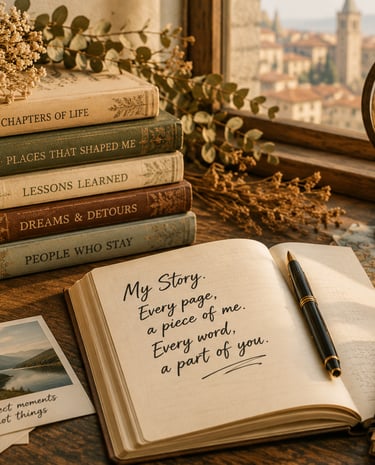 CHAPTERS OF LIFE
PLACES THAT SHAPED ME
LESSONS LEARNED
DREAMS & DETOURS
PEOPLE WHO STAY
My Story.
Every page,
a piece of me.
Every word,
a part of you.
moments
not things